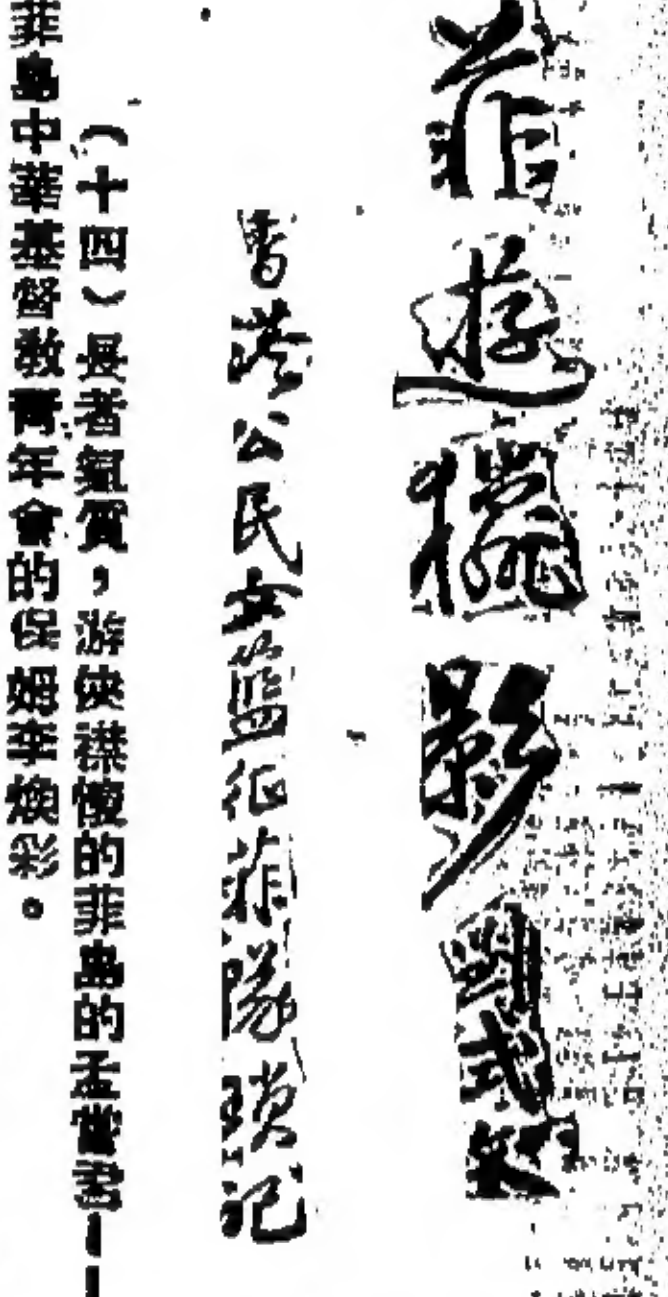 菲遊獵影
香港公民女籃征菲隊瑣記
（十四）長者氣質，游俠襟懷的菲島的孟嘗君——
菲島中華基督教青年會的保姆李煥彩。